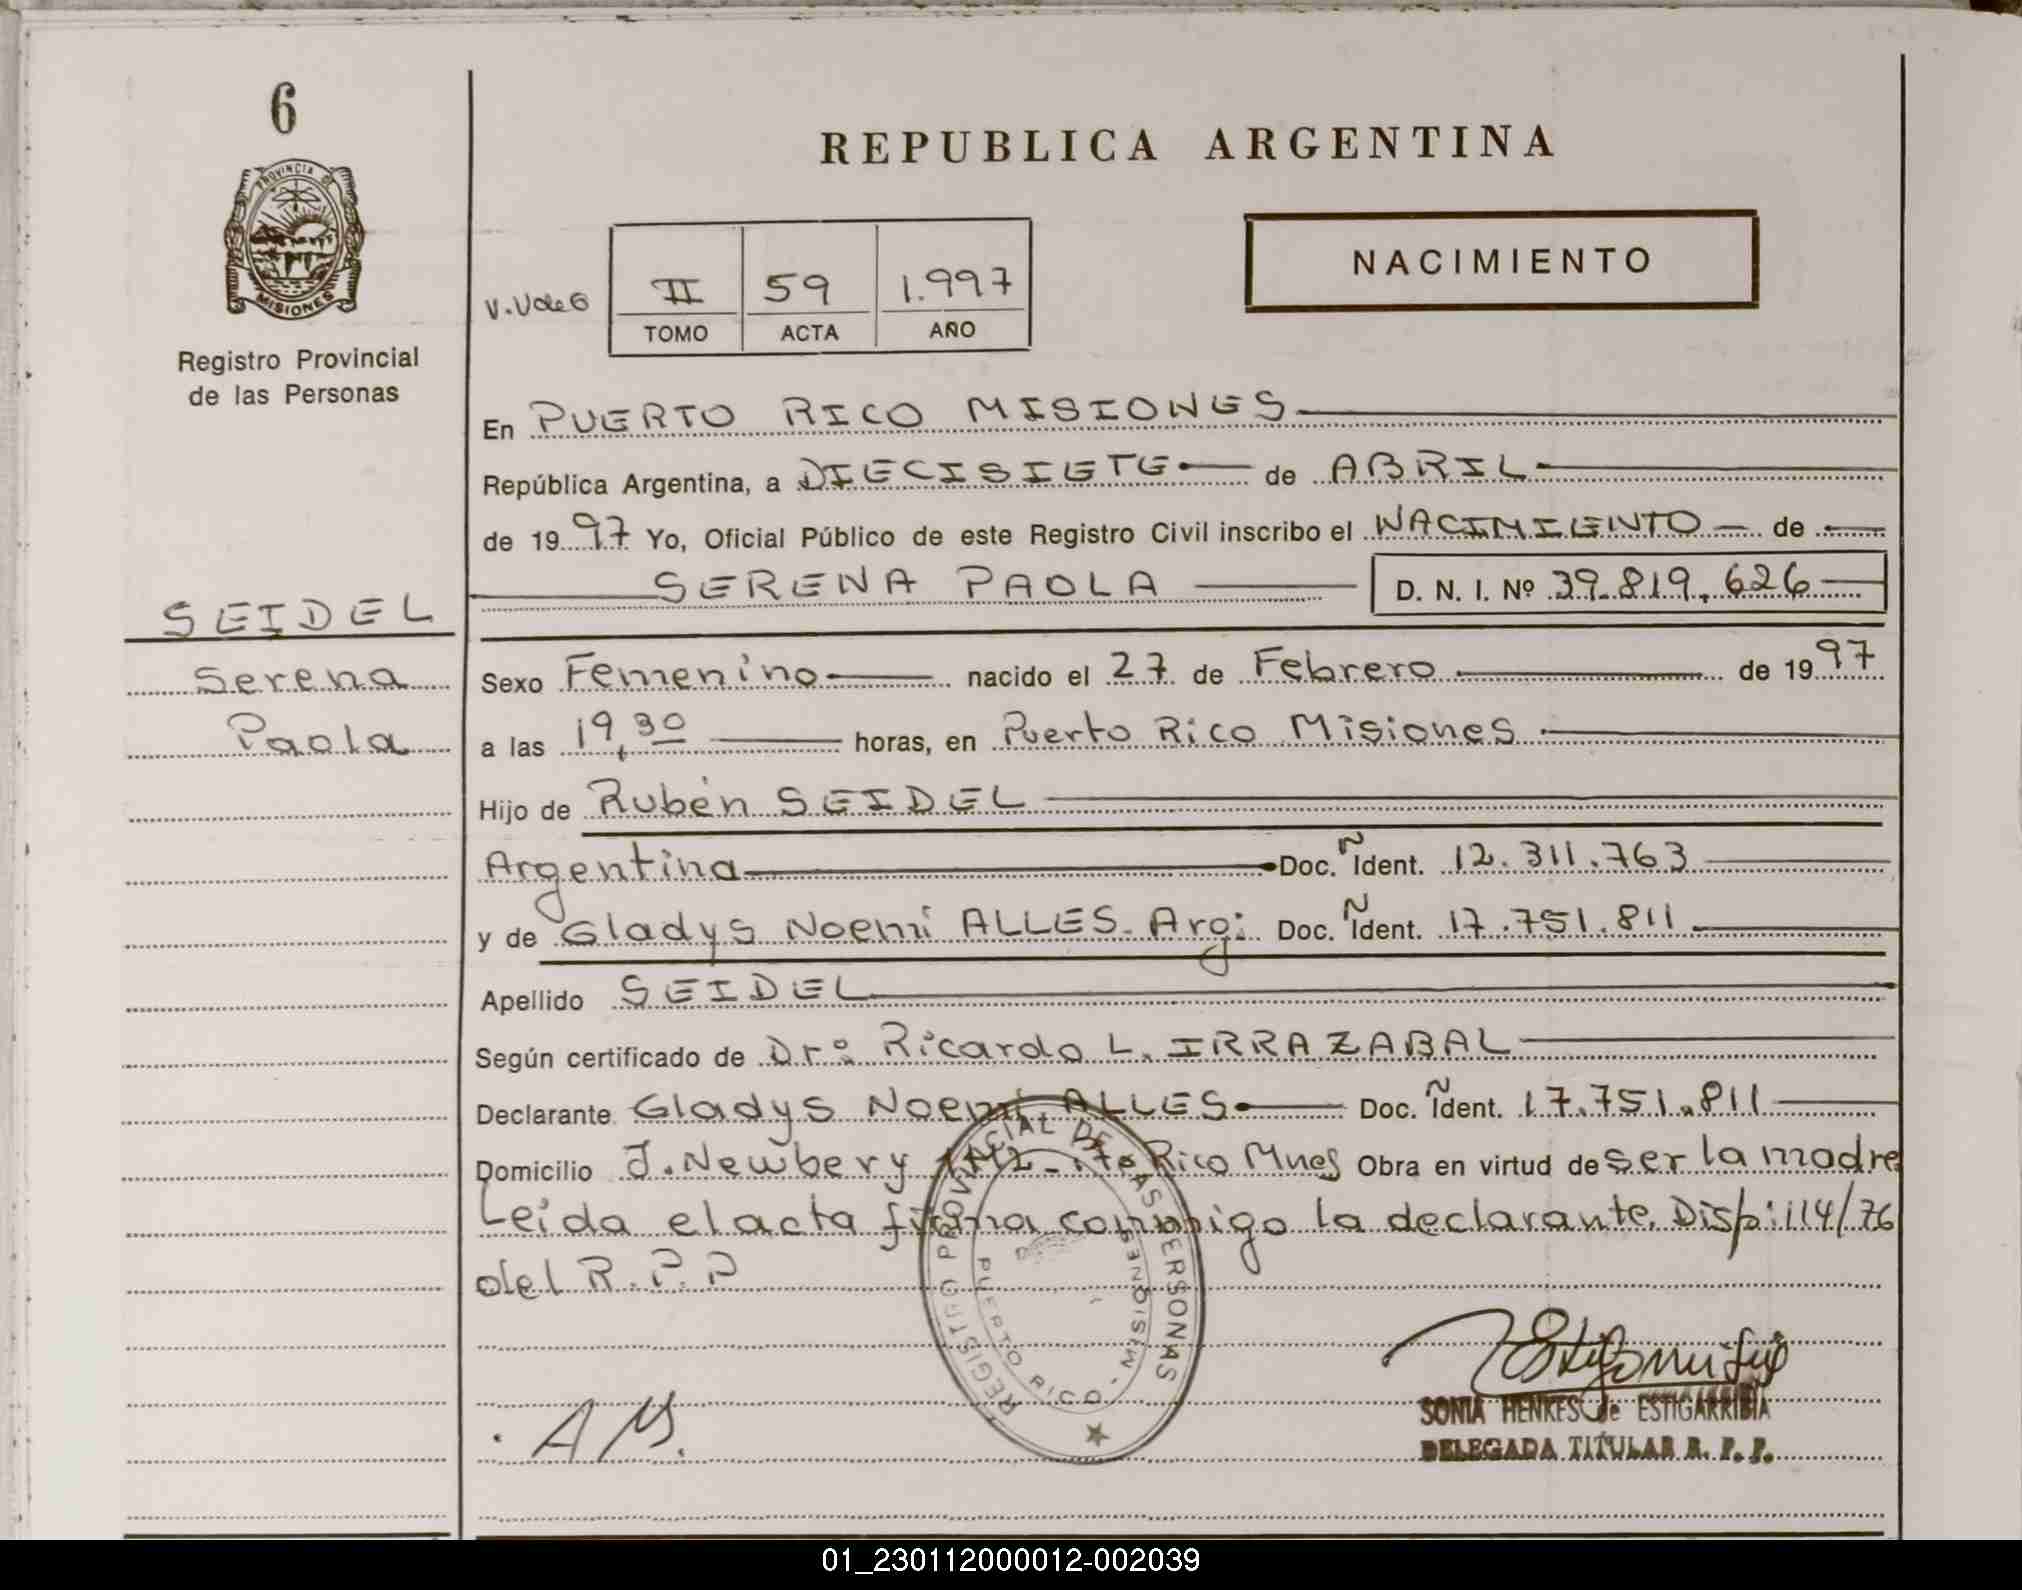 6
PROVINCIA DE
MISIONES
Registro Provincial
de las Personas
SEIDEL
Serena
Paola
REPUBLICA ARGENTINA
NACIMIENTO
V.Ude6
II 59 1.997
TOMO ACTA AÑO
En PUERTO RICO MISIONES
República Argentina, a DIECISIETE de ABRIL
de 1997 Yo, Oficial Público de este Registro Civil inscribo el NACIMIENTO de
SERENA PAOLA D. N. I. Nº 39.819.626
Sexo Femenino nacido el 27 de Febrero de 1997
a las 19,30 horas, en Puerto Rico Misiones
Hijo de Rubén SEIDEL
Argentina Doc. Ñ Ident. 12.311.763
y de Gladys Noemí ALLES. Arg: Doc. Ñ Ident. 17.751.811
Apellido SEIDEL
Según certificado de Dr: Ricardo L. IRRAZABAL
Declarante Gladys Noemí ALLES Doc. Ñ Ident. 17.751.811
Domicilio J. Newbery Pto Rico Mnes Obra en virtud de ser la madre
Leida el acta firma conmigo la declarante. Disp: 114/76
del R.P.P
REGISTRO PROVINCIAL DE LAS PERSONAS
PUERTO RICO - MISIONES
SONIA HENKES de ESTIGARRIBIA
DELEGADA TITULAR R. P. P.
01_230112000012-002039